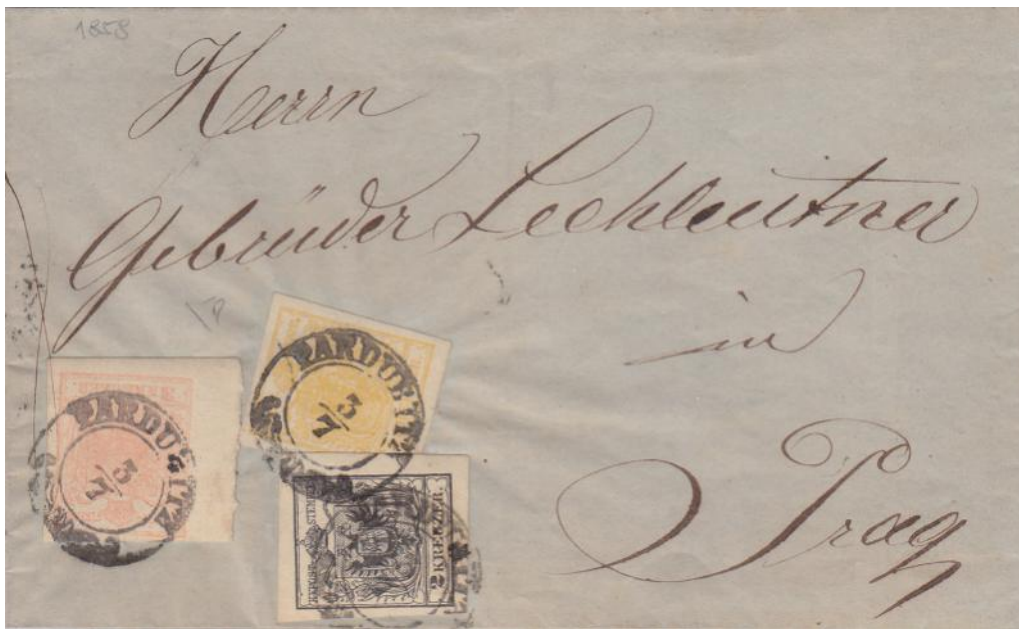 1858
Herrn
Gebrüder Lechleutner
in
Prag
PARDUBITZ
3/7
PARDUBITZ
3/7
2 KREUZER